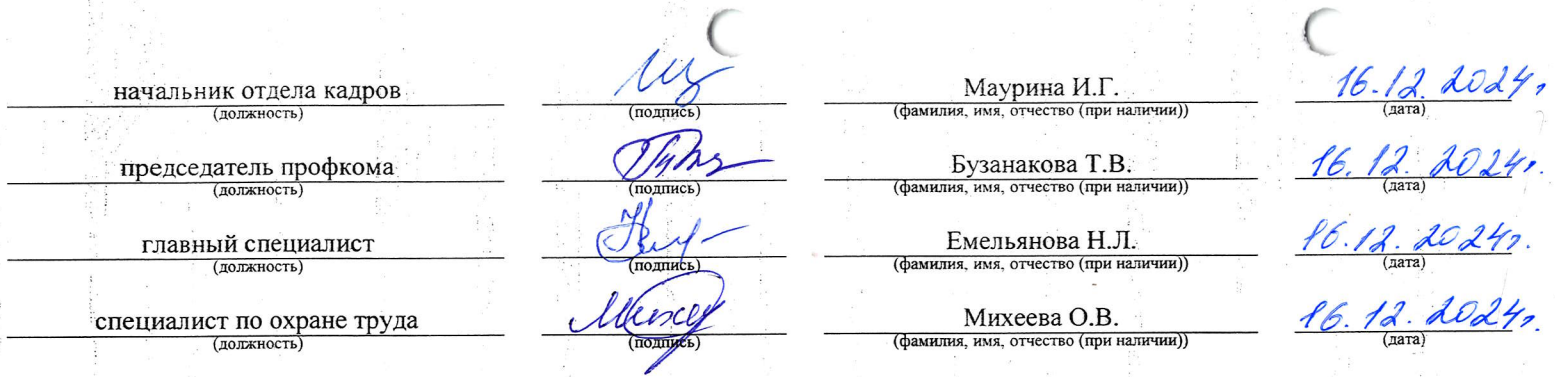 начальник отдела кадров Маурина И.Г. 16.12.2024г.
(должность) (подпись) (фамилия, имя, отчество (при наличии)) (дата)
председатель профкома Бузанакова Т.В. 16.12.2024г.
(должность) (подпись) (фамилия, имя, отчество (при наличии)) (дата)
главный специалист Емельянова Н.Л. 16.12.2024г.
(должность) (подпись) (фамилия, имя, отчество (при наличии)) (дата)
специалист по охране труда Михеева О.В. 16.12.2024г.
(должность) (подпись) (фамилия, имя, отчество (при наличии)) (дата)